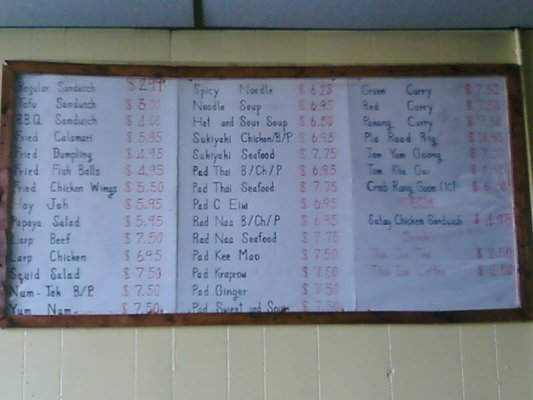 Regular Sandwich $ 2.99
Tofu Sandwich $ 3.00
B.B.Q. Sandwich $ 4.00
Fried Calamari $ 5.95
Fried Dumpling $ 4.95
Fried Fish Balls $ 4.95
Fried Chicken Wings $ 5.50
Joh $ 5.95
Papaya Salad $ 5.95
Larp Beef $ 7.50
Larp Chicken $ 6.95
Squid Salad $ 7.50
Num-Tok B/P $ 7.50
Yum Num $ 7.50
Spicy Noodle $ 6.25
Noodle Soup $ 6.95
Hot and Sour Soup $ 6.50
Sukiyaki Chicken/B/P $ 6.95
Sukiyaki Seafood $ 7.75
Pad Thai B/Ch/P $ 6.95
Pad Thai Seafood $ 7.75
Pad C Eiw $ 6.95
Rad Naa B/Ch/P $ 6.95
Rad Naa Seafood $ 7.75
Pad Kee Mao $ 7.50
Pad Kraprow $ 7.50
Pad Ginger $ 7.50
Pad Sweet and Sour $ 7.50
Green Curry $ 7.50
Red Curry $
Panang Curry $
Pla Raad Prig $
Tom Yum Goong $
Tom Kha Gai $
Crab Rang Goon $
Satay Chicken Sandwich $ 4.975
Thai Ice Tea $
Thai Ice Coffee $